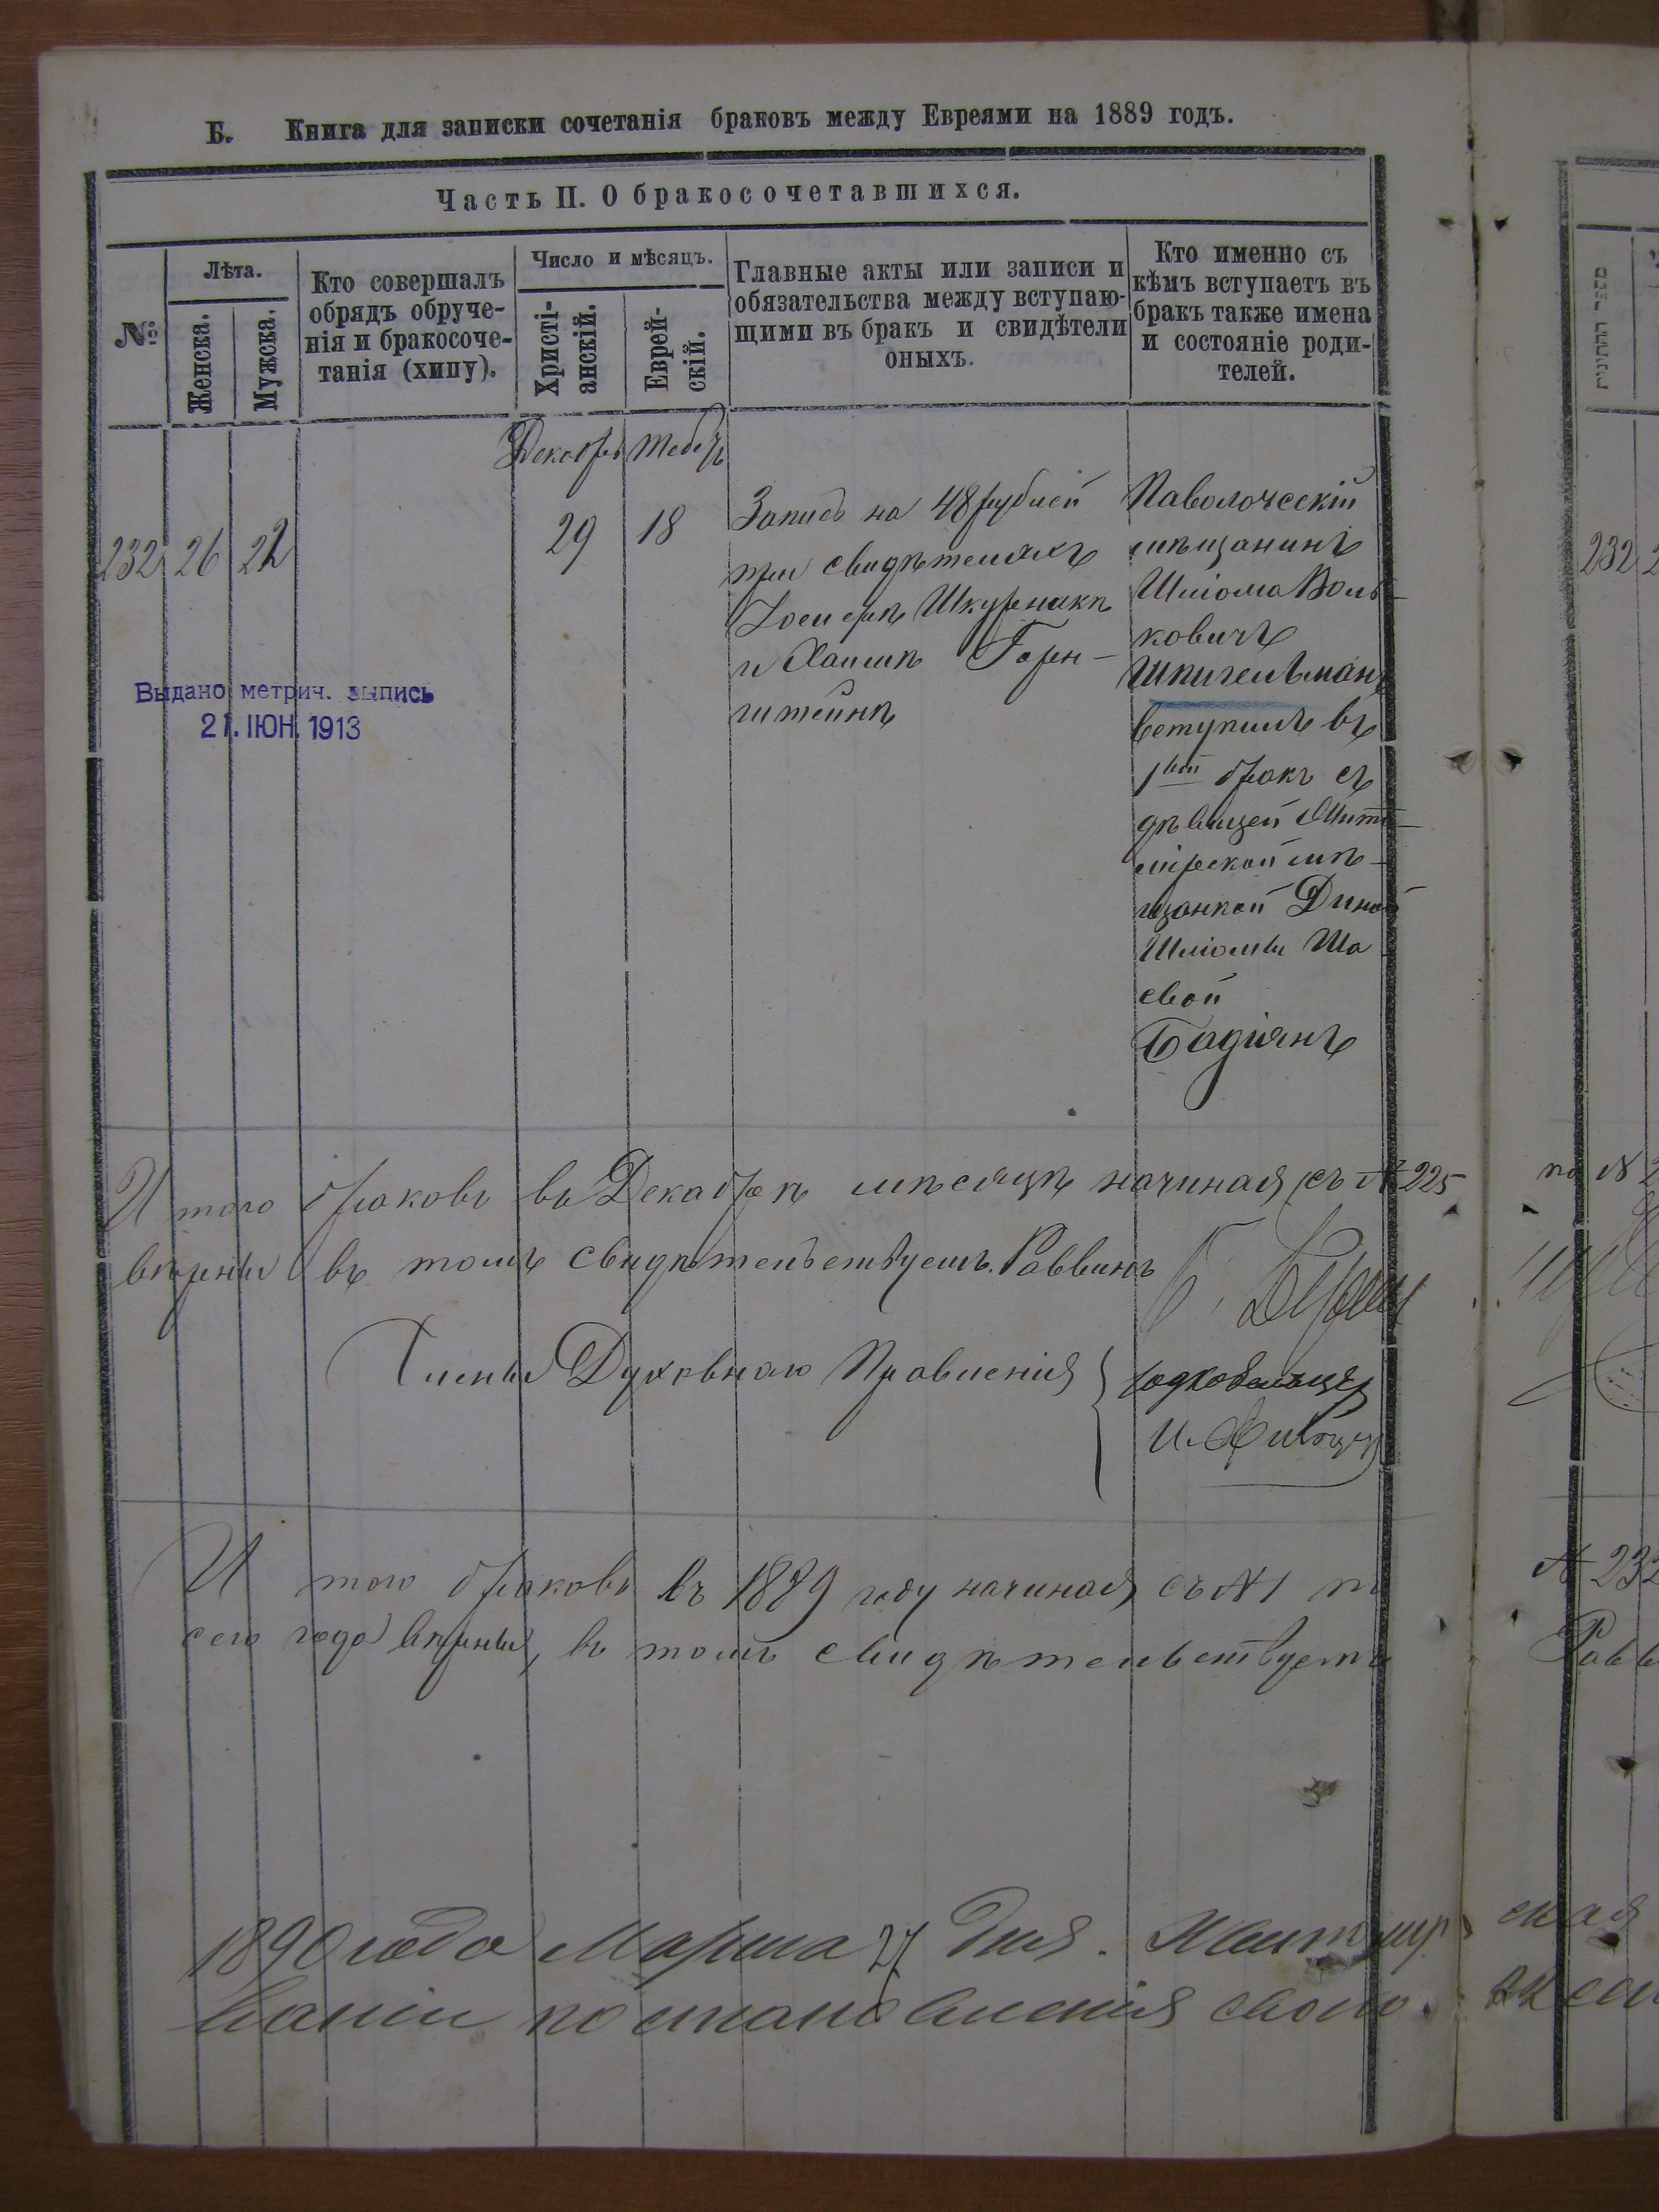 Б. Книга для записки сочетанія браковъ между Евреями на 1889 годъ.
Часть II. О бракосочетавшихся.
№
Лѣта.
Женска.
Мужска.
Кто совершалъ
обрядъ обруче-
нія и бракосоче-
танія (хипу).
Число и мѣсяцъ.
Христі-
анскій.
Еврей-
скій.
Главные акты или записи и
обязательства между вступаю-
щими въ бракъ и свидѣтели
оныхъ.
Кто именно съ
кѣмъ вступаетъ въ
бракъ также имена
и состояніе роди-
телей.
Декабрь
232
26
22
29
18
Запись на 48 рублей
при свидѣтеляхъ
Шкурникѣ
и Хаимѣ Горен-
штейнѣ
Паволочскій
мѣщанинъ
Шліома Воль-
ковичъ
Шпигельманъ
вступилъ въ
1вый бракъ съ
дѣвицей Жито-
мірской мѣ-
щанкой Диной
Шліомы Ша
евой
Бадіянъ
Выдано метрич. выпись
21. ІЮН. 1913
И того браковъ въ Декабрѣ мѣсяцѣ начиная съ № 225
вѣрны въ томъ свидѣтельствуемъ. Раввинъ
Члены Духовнаго Правленія
И того браковъ въ 1889 году начиная съ №1 по
сего года вѣрны, въ томъ свидѣтельствуемъ
1890 года Марта 27 дня. Житомир
постановленія своего
מספר החתונות
232
№ 232